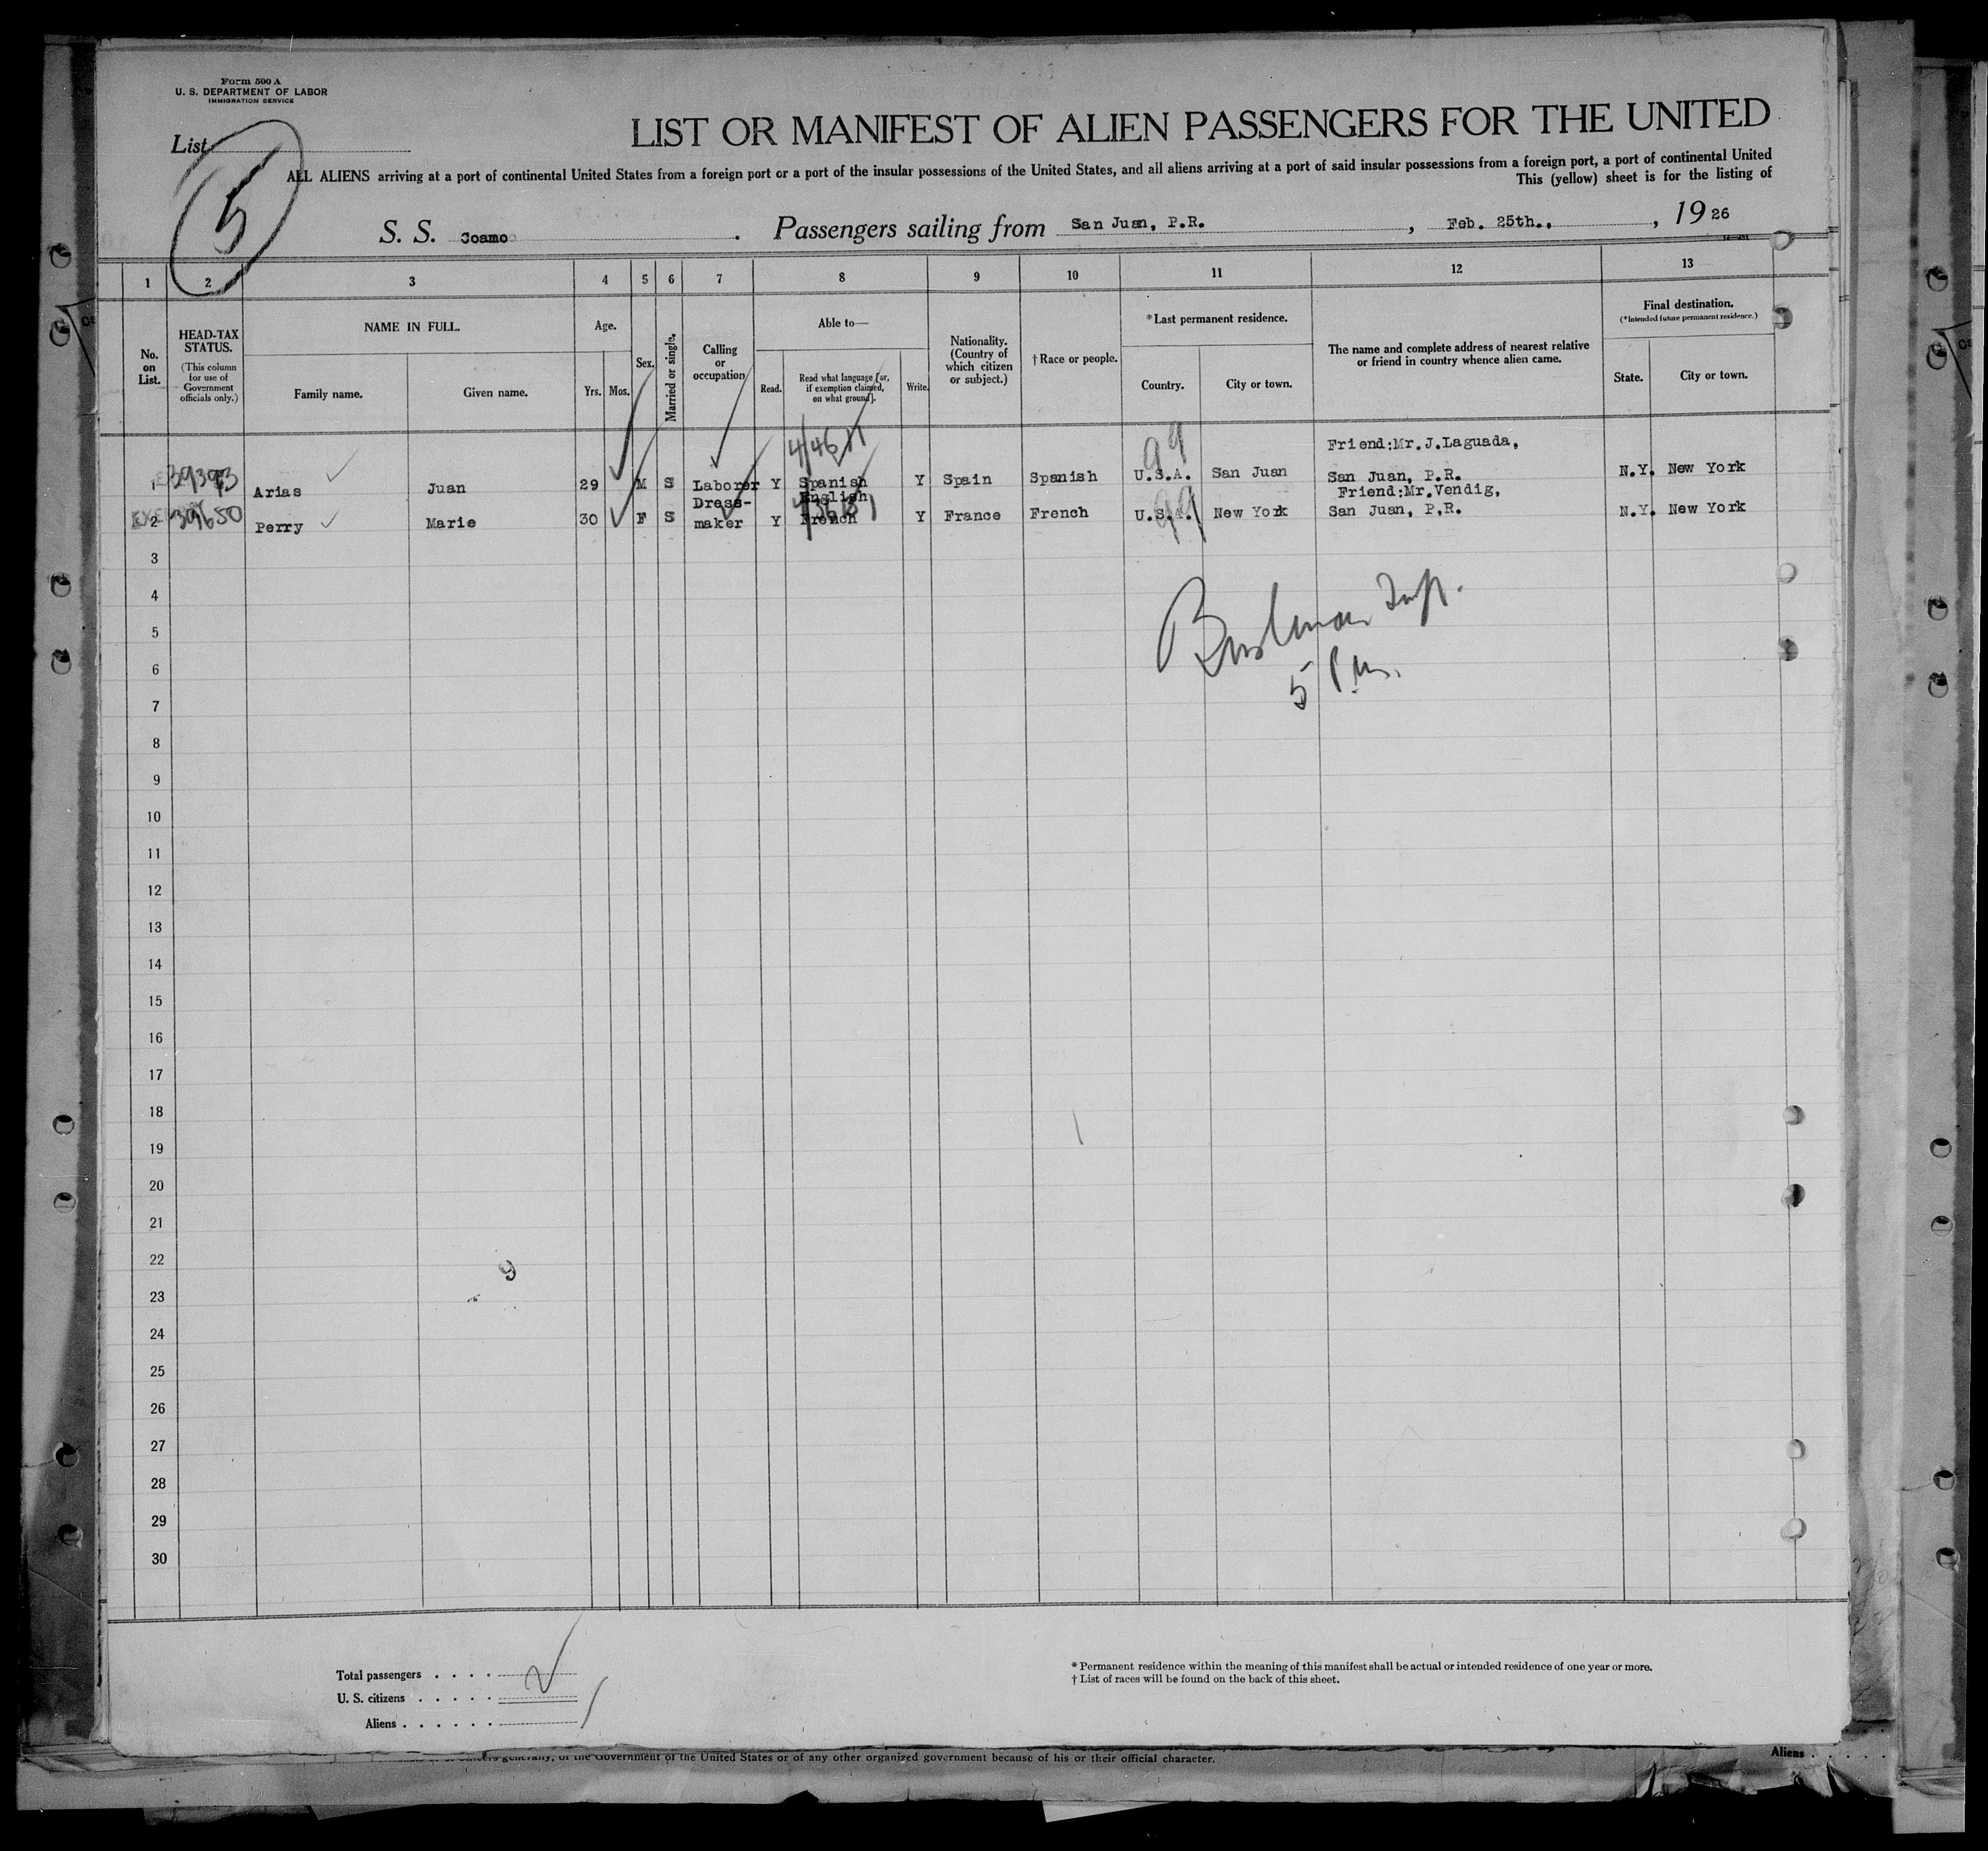 Form 500 A
U. S. DEPARTMENT OF LABOR
IMMIGRATION SERVICE
List
5
LIST OR MANIFEST OF ALIEN PASSENGERS FOR THE UNITED
ALL ALIENS arriving at a port of continental United States from a foreign port or a port of the insular possessions of the United States, and all aliens arriving at a port of said insular possessions from a foreign port, a port of continental United
This (yellow) sheet is for the listing of
S. S. Coamo . Passengers sailing from San Juan, P.R. , Feb. 25th., , 19 26
1 2 3 4 5 6 7 8 9 10 11 12 13
No. on List.
HEAD-TAX STATUS.
(This column for use of Government officials only.)
NAME IN FULL.
Family name. Given name.
Age.
Yrs. Mos.
Sex.
Married or single.
Calling or occupation
Able to—
Read. Read what language [or, if exemption claimed, on what ground]. Write.
Nationality. (Country of which citizen or subject.)
† Race or people.
* Last permanent residence.
Country. City or town.
The name and complete address of nearest relative or friend in country whence alien came.
Final destination.
(* Intended future permanent residence.)
State. City or town.
Friend:Mr.J.Laguada,
1 39393 Arias Juan 29 M S Laborer Y Spanish Y Spain Spanish U.S.A. San Juan San Juan, P.R. N.Y. New York
Dress- English Friend:Mr.Vendig,
2 39650 Perry Marie 30 F S maker Y French Y France French U.S.A. New York San Juan, P.R. N.Y. New York
99
99
3
4
5
Insp.
6
5 P.m.
7
8
9
10
11
12
13
14
15
16
17
18
19
20
21
22
23
24
25
26
27
28
29
30
Total passengers . . . .
U. S. citizens . . . . .
Aliens . . . . . .
* Permanent residence within the meaning of this manifest shall be actual or intended residence of one year or more.
† List of races will be found on the back of this sheet.
generally, of the Government of the United States or of any other organized government because of his or their official character.
Aliens . . . . .